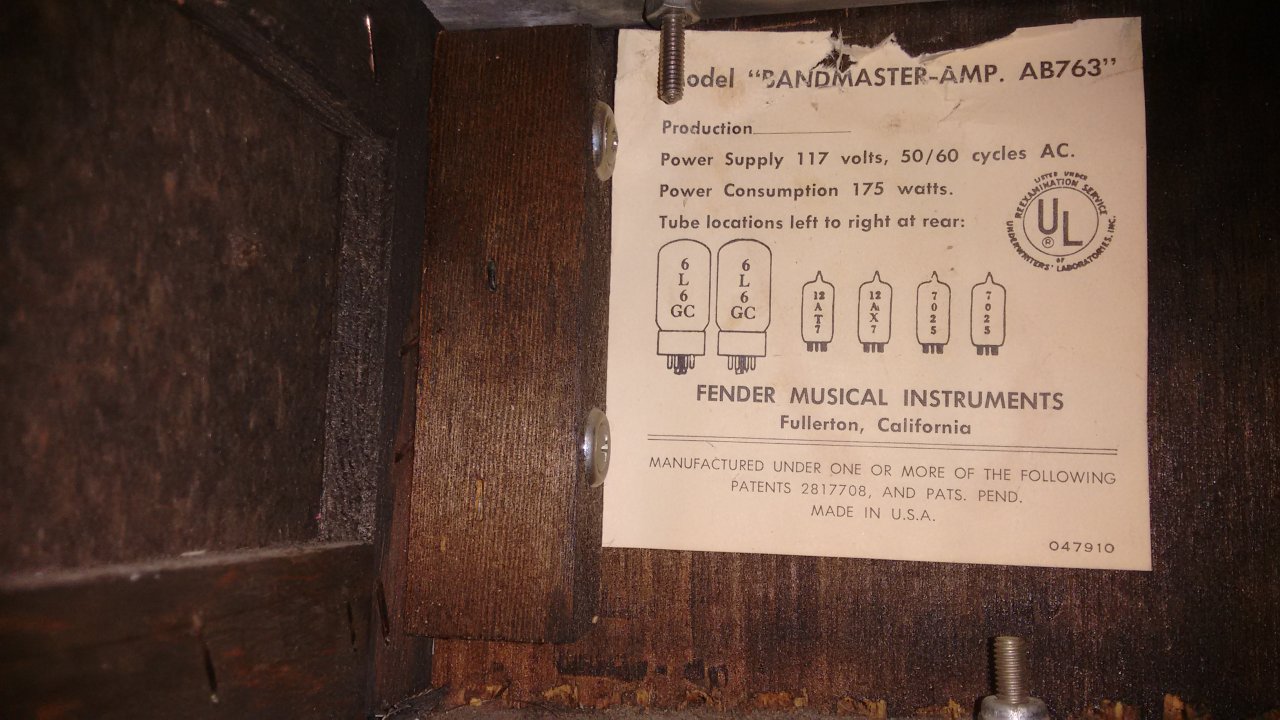 Model "BANDMASTER-AMP. AB763"
Production
Power Supply 117 volts, 50/60 cycles AC.
Power Consumption 175 watts.
Tube locations left to right at rear:
LISTED UNDER
REEXAMINATION SERVICE
UL
®
OF
UNDERWRITERS' LABORATORIES, INC.
6L6GC
6L6GC
12AT7
12AX7
7025
7025
FENDER MUSICAL INSTRUMENTS
Fullerton, California
MANUFACTURED UNDER ONE OR MORE OF THE FOLLOWING
PATENTS 2817708, AND PATS. PEND.
MADE IN U.S.A.
047910